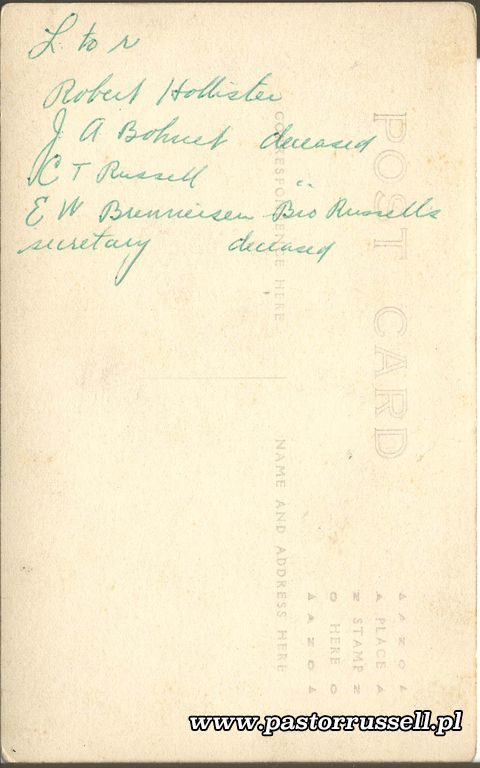 L. to r
Robert Hollister
J A Bohnet deceased
C T Russell "
E W Brenneisen Bro Russells
secretary deceased
POST CARD
CORESPONDENCE HERE
NAME AND ADDRESS HERE
AZOA
PLACE
STAMP
HERE
AZOA
www.pastorrussell.pl